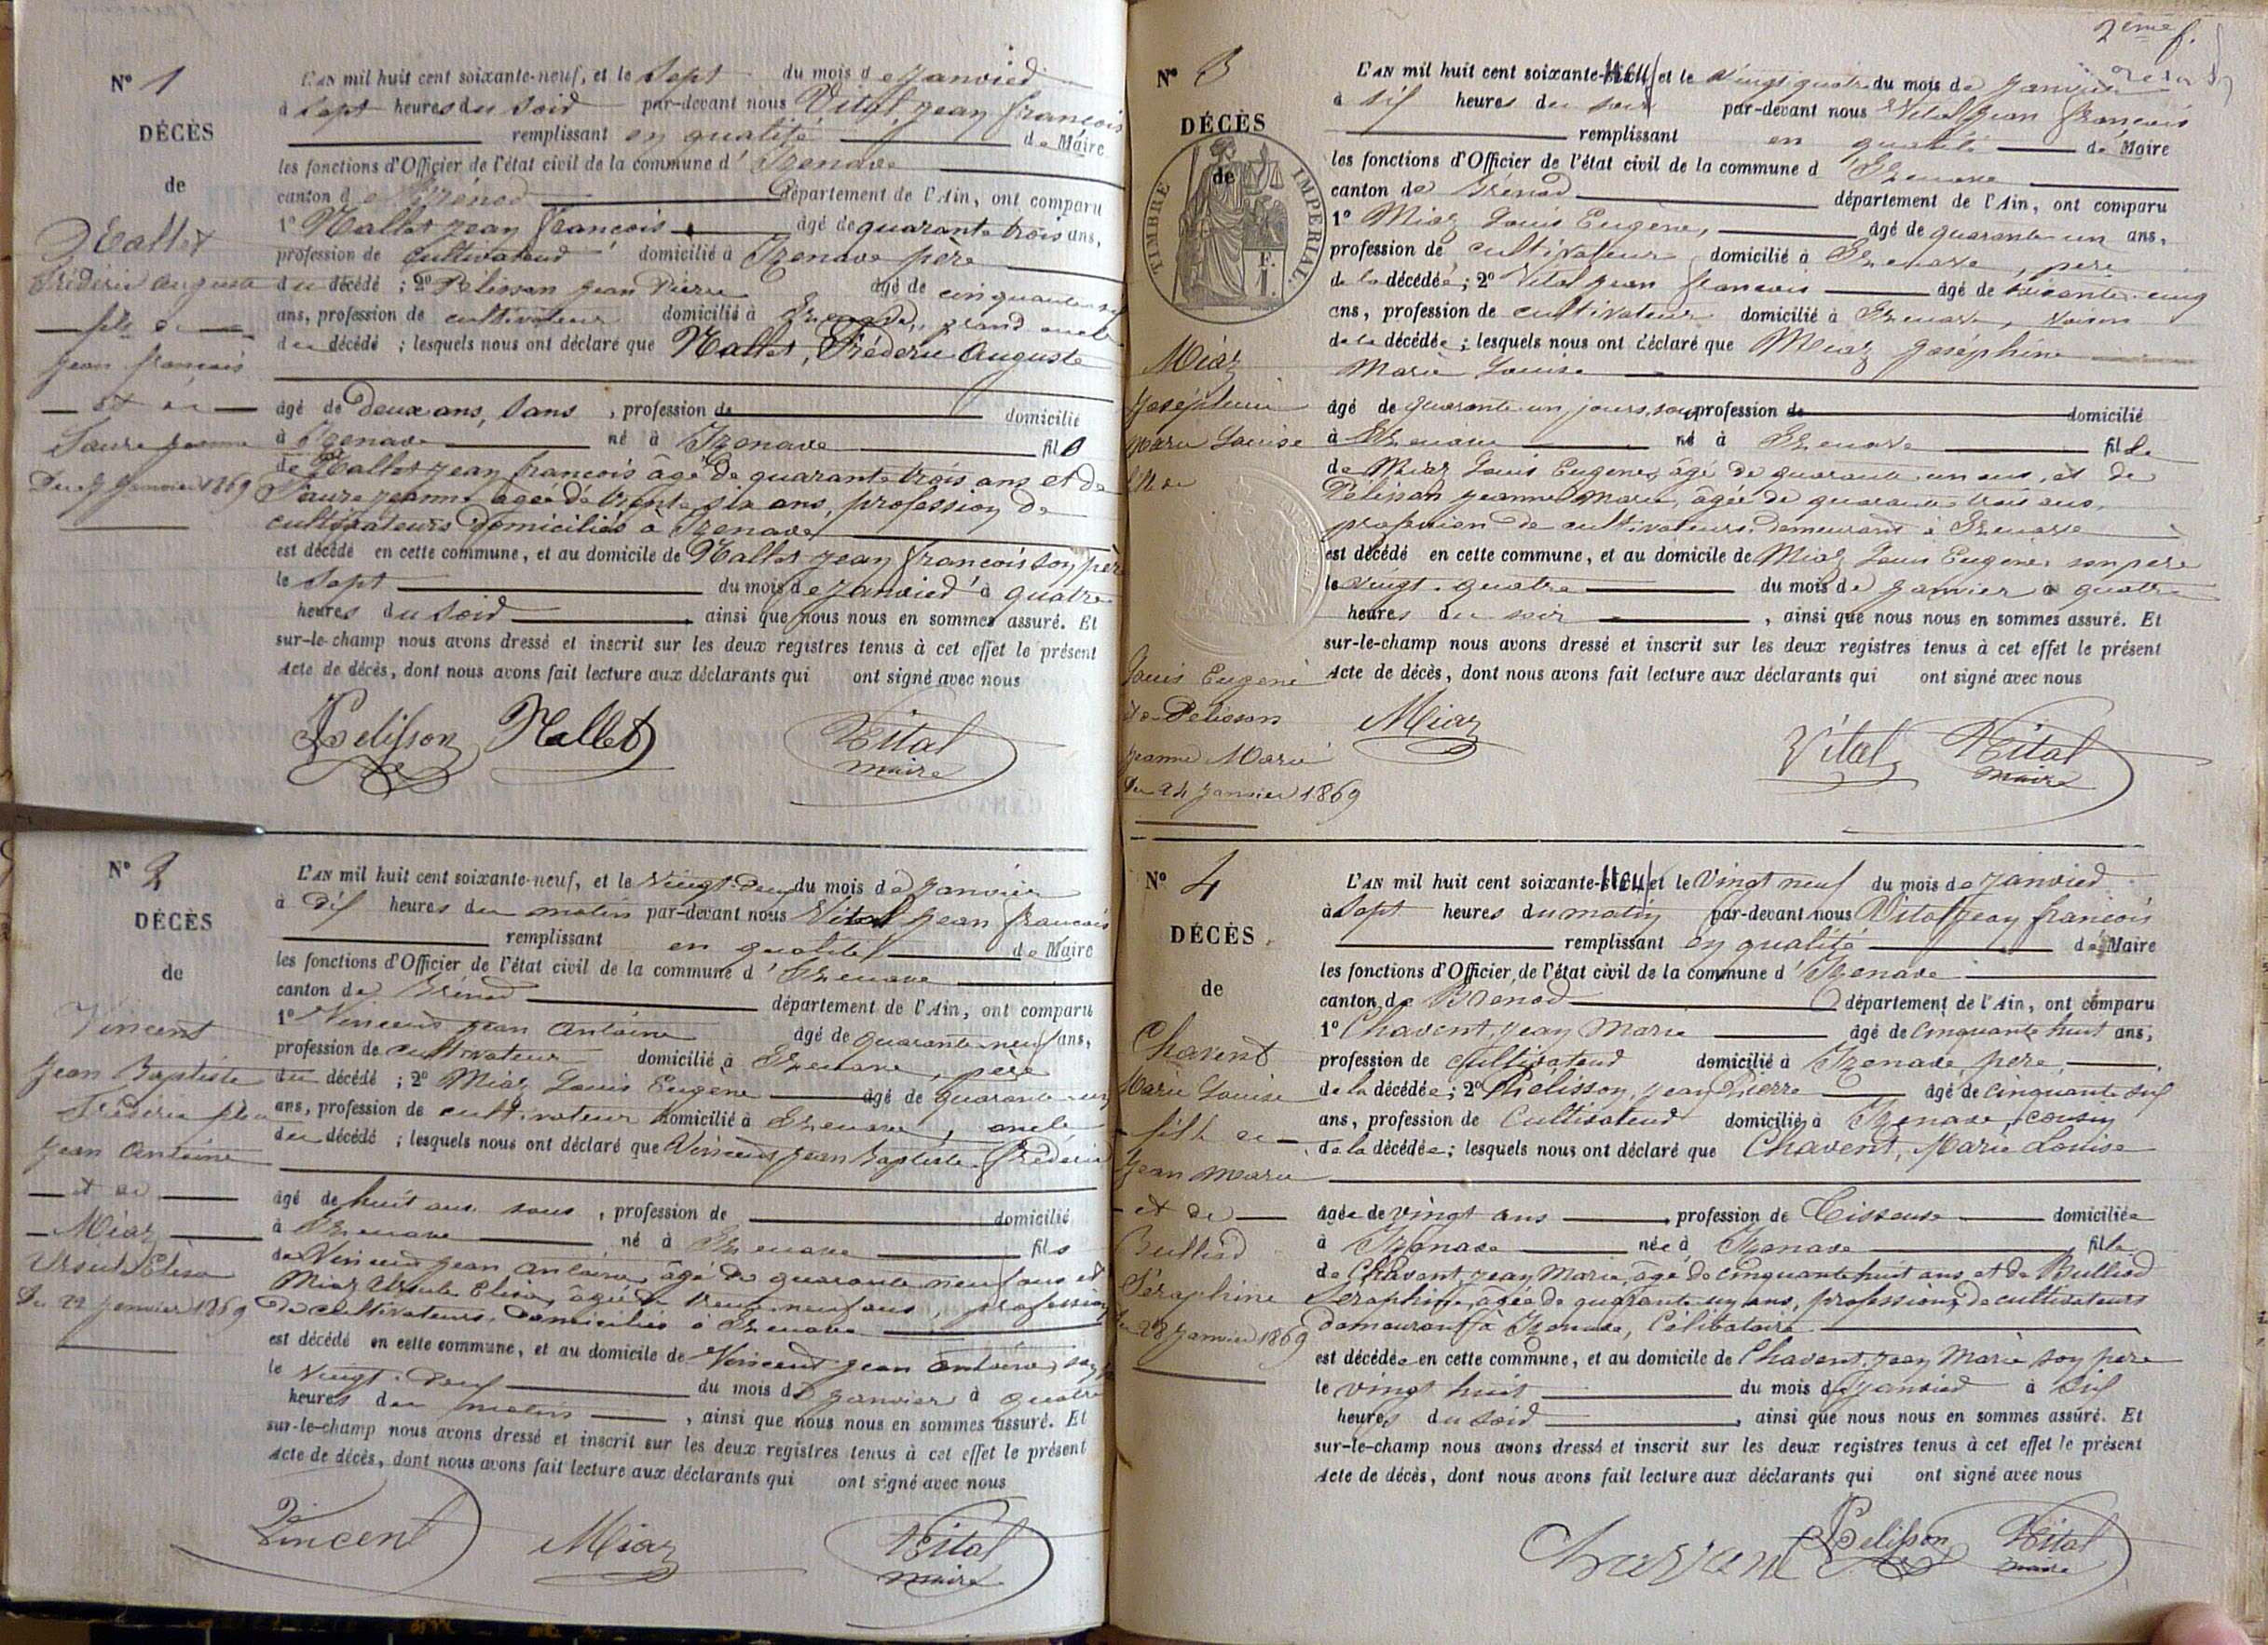 N° 1
DÉCÈS
de
Nallet
Frédéric Auguste
fils de
Jean françois
et de
Faure Jeanne
Du 7 Janvier 1869
L'AN mil huit cent soixante-neuf, et le Sept du mois de Janvier
à Sept heures du Soir par-devant nous Vital Jean françois
remplissant en qualité de Maire
les fonctions d'Officier de l'état civil de la commune d'Izenave
canton de Brénod département de l'Ain, ont comparu
1° Nallet Jean françois âgé de quarante trois ans,
profession de Cultivateur domicilié à Izenave père
du décédé ; 2° Pélisson Jean Pierre âgé de cinquante six
ans, profession de cultivateur domicilié à Izenave, grand oncle
du décédé ; lesquels nous ont déclaré que Nallet, Fréderic Auguste
âgé de Deux ans, Sans , profession de domicilié
à Izenave né à Izenave fils
de Nallet Jean françois âgé de quarante trois ans et de
Faure Jeanne âgée de trente six ans, profession de
cultivateurs domiciliés à Izenave
est décédé en cette commune, et au domicile de Nallet Jean françois son père
le Sept du mois de Janvier à quatre
heures du Soir , ainsi que nous nous en sommes assuré. Et
sur-le-champ nous avons dressé et inscrit sur les deux registres tenus à cet effet le présent
Acte de décès, dont nous avons fait lecture aux déclarants qui ont signé avec nous
Pelisson Nallet Vital
maire
N° 2
DÉCÈS
de
Vincent
Jean Baptiste
Frédéric fils de
Jean Antoine
et de
Miaz
Ursule Elisa
Du 22 Janvier 1869
L'AN mil huit cent soixante-neuf, et le Vingt-deux du mois de Janvier
à dix heures du matin par-devant nous Vital Jean françois
remplissant en qualité de Maire
les fonctions d'Officier de l'état civil de la commune d'Izenave
canton de Brénod département de l'Ain, ont comparu
1° Vincent Jean Antoine âgé de quarante-neuf ans,
profession de cultivateur domicilié à Izenave, père
du décédé ; 2° Miaz Louis Eugene âgé de quarante-un
ans, profession de cultivateur domicilié à Izenave, oncle
du décédé ; lesquels nous ont déclaré que Vincent Jean Baptiste fréderic
âgé de huit ans sans , profession de domicilié
à Izenave né à Izenave fils
de Vincent Jean Antoine, âgé de quarante neuf ans et
Miaz Ursule Elisa, âgée de trente neuf ans, profession
de cultivateurs, domiciliés à Izenave
est décédé en cette commune, et au domicile de Vincent Jean Antoine, son
le vingt-deux du mois de Janvier à quatre
heures du matin , ainsi que nous nous en sommes assuré. Et
sur-le-champ nous avons dressé et inscrit sur les deux registres tenus à cet effet le présent
Acte de décès, dont nous avons fait lecture aux déclarants qui ont signé avec nous
Vincent Miaz Vital
maire
2eme f.
N° 3
DÉCÈS
de
TIMBRE IMPÉRIAL
1 F.
Miaz
Joséphine
Marie Louise
fille de
Louis Eugène
et de Pelisson
Jeanne Marie
Du 24 Janvier 1869
L'AN mil huit cent soixante-neuf et le vingt quatre du mois de Janvier
à six heures du soir par-devant nous Vital Jean françois
remplissant en qualité de Maire
les fonctions d'Officier de l'état civil de la commune d'Izenave
canton de Brénod département de l'Ain, ont comparu
1° Miaz Louis Eugene, âgé de quarante un ans,
profession de cultivateur domicilié à Izenave, père
de la décédée ; 2° Vital Jean françois âgé de soixante-cinq
ans, profession de cultivateur domicilié à Izenave, voisin
de la décédée ; lesquels nous ont déclaré que Miaz Joséphine
Marie Louise
âgé de quarante-un jours, sans profession de domicilié
à Izenave né à Izenave fille
de Miaz Louis Eugene, âgé de quarante un ans, et de
Pélisson Jeanne Marie, âgée de quarante trois ans,
profession de cultivateurs demeurant à Izenave
est décédé en cette commune, et au domicile de Miaz Louis Eugene son père
le vingt-quatre du mois de Janvier à quatre
heures du soir , ainsi que nous nous en sommes assuré. Et
sur-le-champ nous avons dressé et inscrit sur les deux registres tenus à cet effet le présent
Acte de décès, dont nous avons fait lecture aux déclarants qui ont signé avec nous
Miaz Vital Vital
maire
N° 4
DÉCÈS
de
Chavent
Marie Louise
fille de
Jean Marie
et de
Bulliod
Séraphine
Du 28 Janvier 1869
L'AN mil huit cent soixante-neuf et le Vingt neuf du mois de Janvier
à Sept heures du matin par-devant nous Vital Jean françois
remplissant en qualité de Maire
les fonctions d'Officier de l'état civil de la commune d'Izenave
canton de Brénod département de l'Ain, ont comparu
1° Chavent, Jean Marie âgé de Cinquante huit ans,
profession de Cultivateur domicilié à Izenave, père,
de la décédée ; 2° Pelisson, Jean Pierre âgé de Cinquante six
ans, profession de Cultivateur domicilié à Izenave, cousin
de la décédée ; lesquels nous ont déclaré que Chavent, Marie Louise
âgée de vingt ans , profession de Tisseuse domiciliée
à Izenave née à Izenave fille
de Chavent, Jean Marie, âgé de Cinquante huit ans et de Bulliod
Seraphine, âgée de quarante un ans, profession de cultivateurs
demeurant à Izenave, Célibataire
est décédée en cette commune, et au domicile de Chavent, Jean Marie son père
le vingt huit du mois de Janvier à six
heures du Soir , ainsi que nous nous en sommes assuré. Et
sur-le-champ nous avons dressé et inscrit sur les deux registres tenus à cet effet le présent
Acte de décès, dont nous avons fait lecture aux déclarants qui ont signé avec nous
Chavent Pelisson Vital
maire